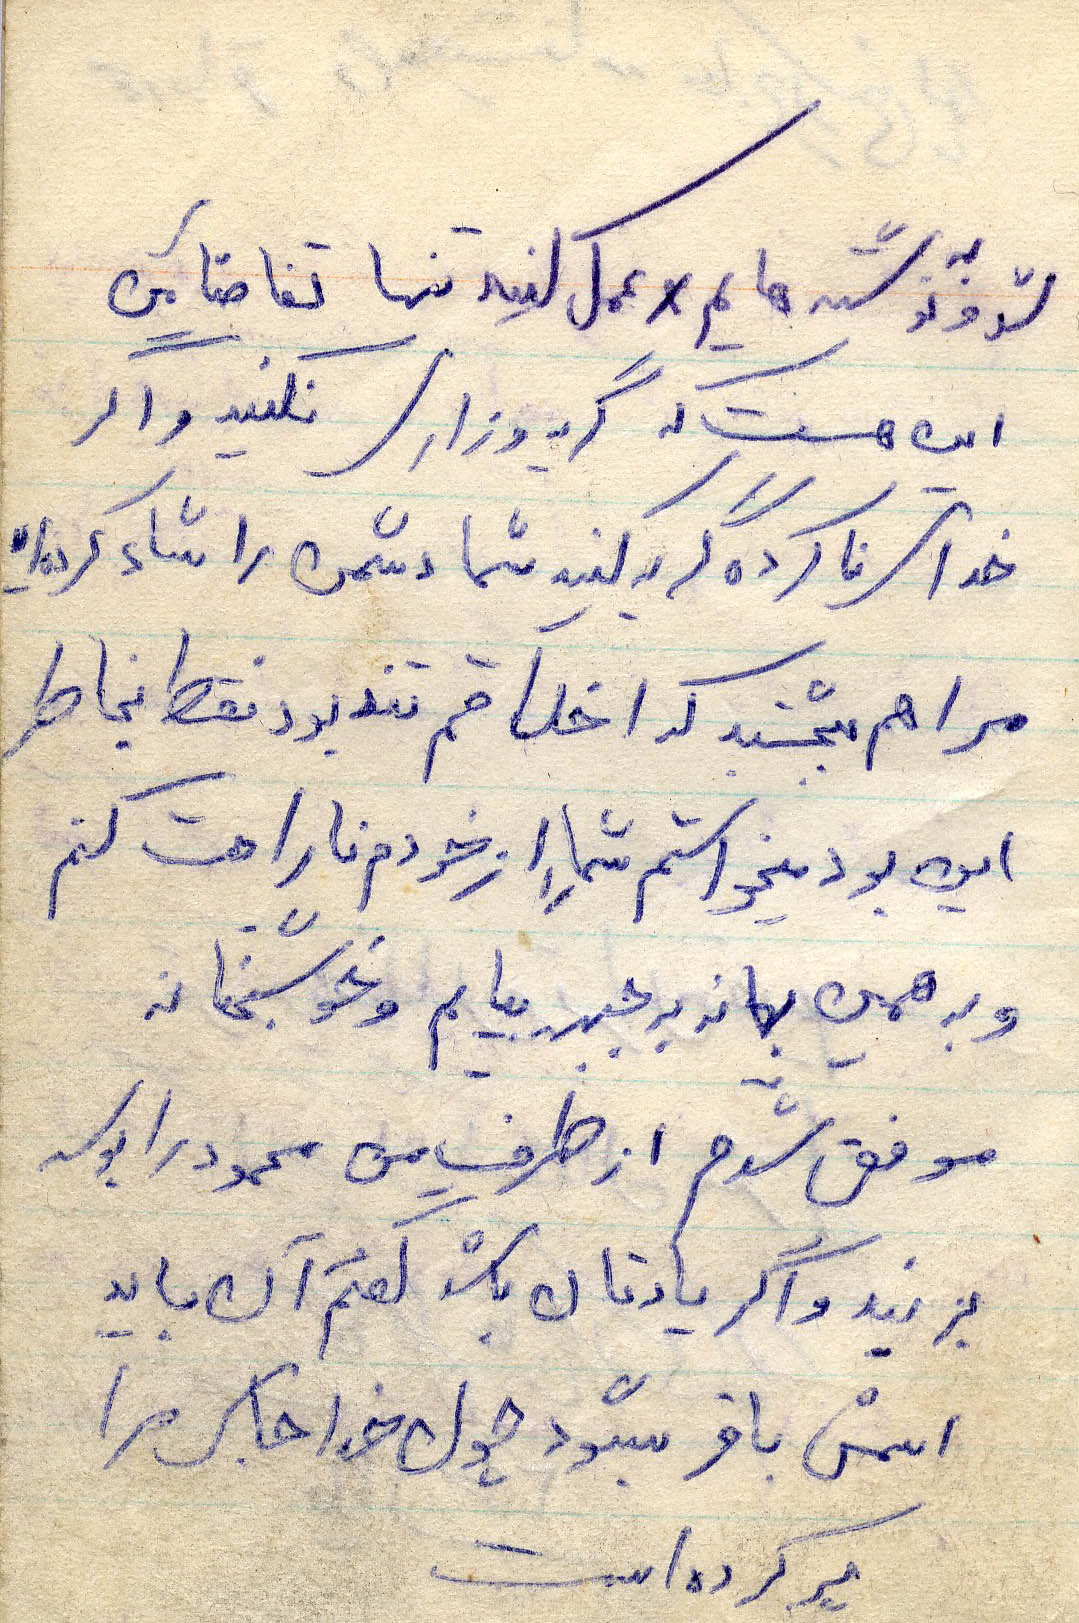 شود و به نوشته هایم عمل کنید تنها تقاضای من
این هست که گریه وزاری نکنید و اگر
خدای ناکرده گریه کنید شما دشمن را شاد کرده‌اید
مرا هم ببخشید که اخلاقم تند بود فقط بخاطر
این بود میخواستم شما را از خودم ناراحت کنم
و به همین بهانه به جبهه بیایم و خوشبختانه
موفق شدم از طرف من محمود را بوسه
بزنید و اگر یادتان باشد گفتم آن باید
اسمش باقر بشود چون خدا جای مرا
پر کرده است